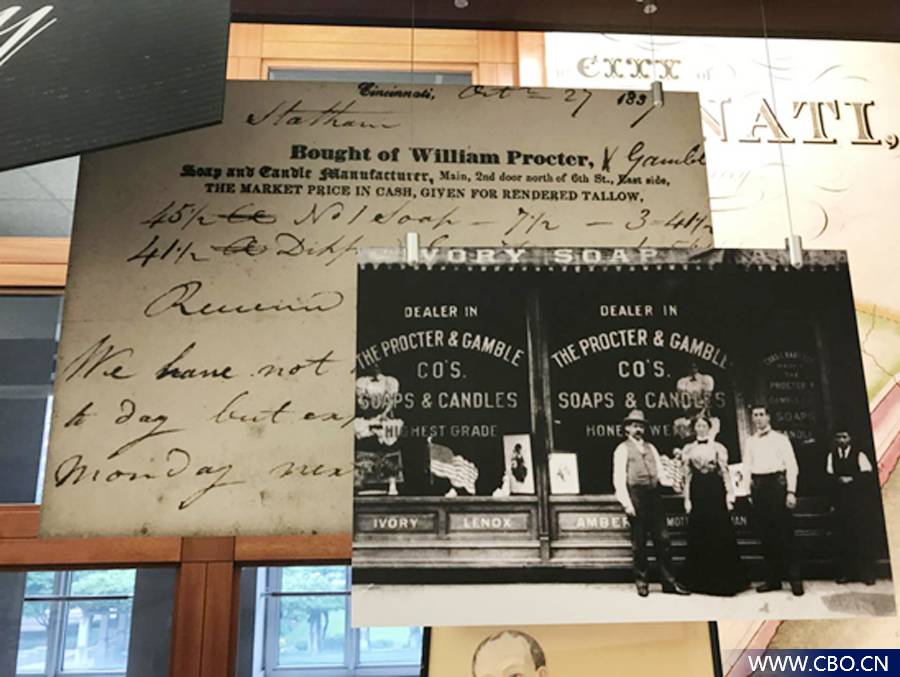 y
EXXX of
NATI,
Cincinnati, Octr 27 1837
Statham
Bought of William Procter, & Gamble
Soap and Candle Manufacturer, Main, 2nd door north of 6th St., East side,
THE MARKET PRICE IN CASH, GIVEN FOR RENDERED TALLOW,
45 1/2 No 1 Soap – 7 1/2 – 3=41 1/2
41 1/2
We have not
to day but
Monday next
IVORY SOAP
DEALER IN
THE PROCTER & GAMBLE
CO'S.
SOAPS & CANDLES
HIGHEST GRADE
DEALER IN
THE PROCTER & GAMBLE
CO'S.
SOAPS & CANDLES
THE
PROCTER &
GAMBLE
SOAPS
CANDLES
IVORY LENOX AMBER
WWW.CBO.CN